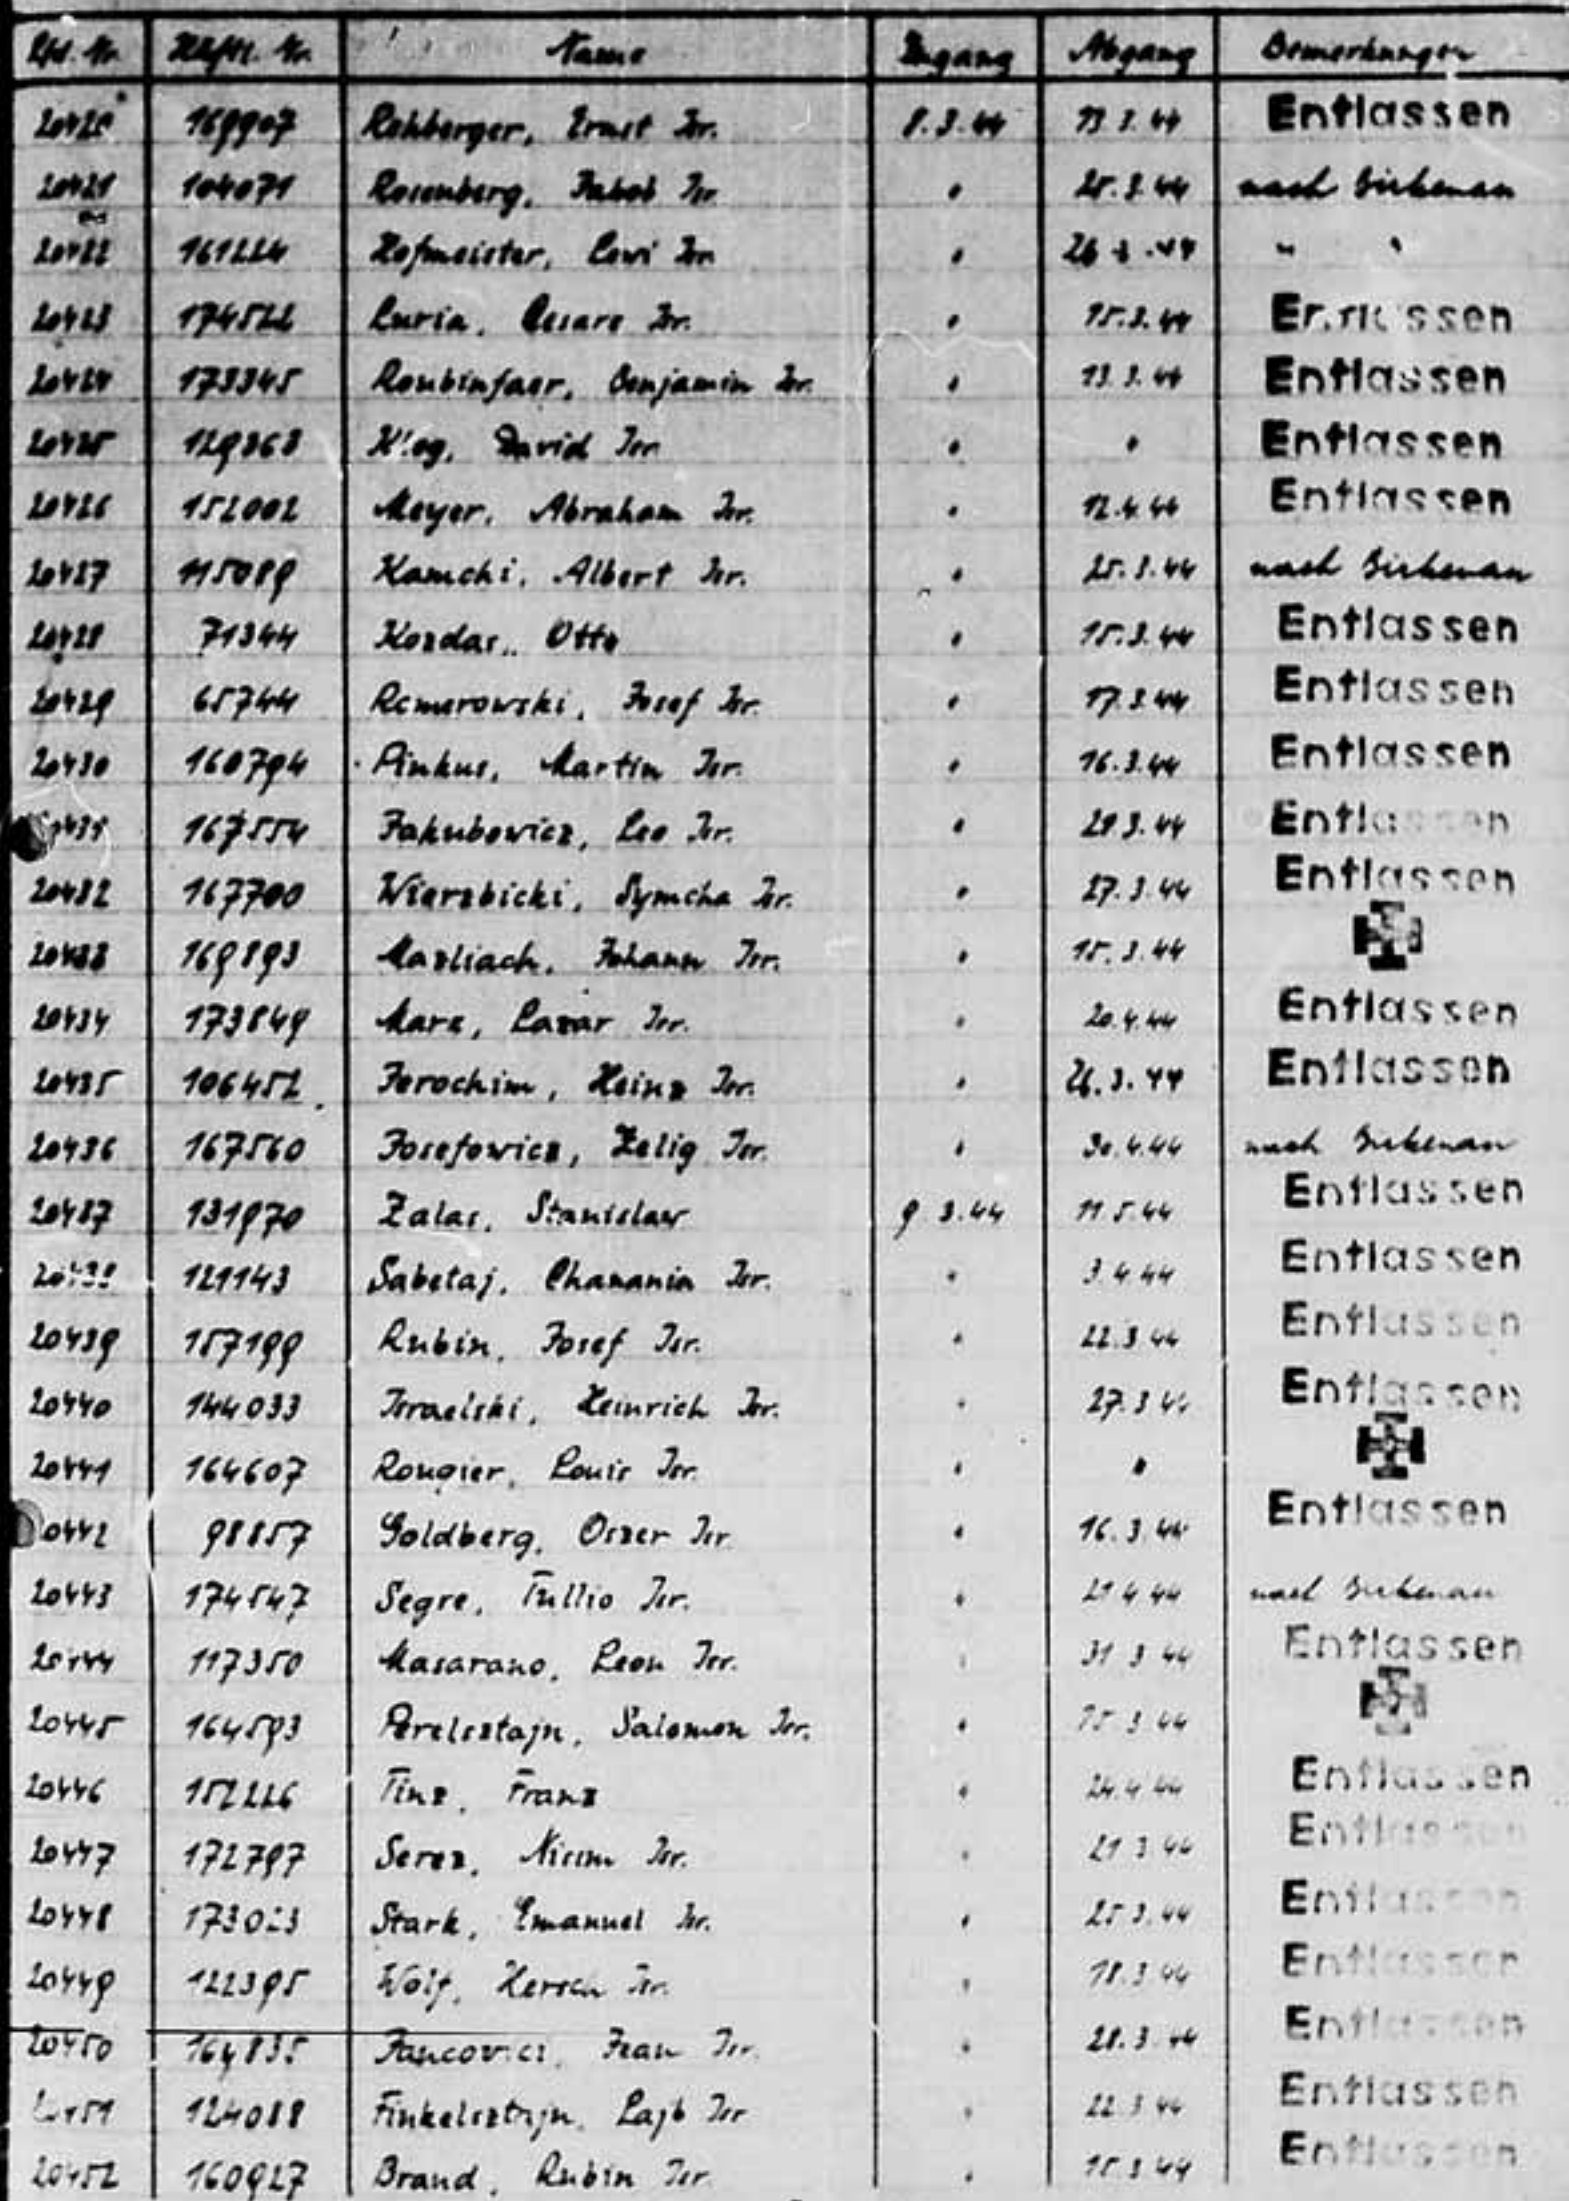 Lfd. Nr. Häftl. Nr. Name Zugang Abgang Bemerkungen
20420 169907 Rehberger, Ernst Isr. 8.3.44 13.3.44 Entlassen
20421 104071 Rosenberg, Jakob Isr. " 25.3.44 nach Birkenau
20422 161224 Hofmeister, Lewi Isr. " 26.3.44 " "
20423 174522 Luria, Cesare Isr. " 15.3.44 Entlassen
20424 173345 Roubinfaer, Benjamin Isr. " 13.3.44 Entlassen
20425 129363 David Isr. " " Entlassen
20426 152002 Meyer, Abraham Isr. " 12.4.44 Entlassen
20427 115089 Kamchi, Albert Isr. " 25.3.44 nach Birkenau
20428 71344 Kozdas, Otto " 15.3.44 Entlassen
20429 65744 Remerowski, Josef Isr. " 17.3.44 Entlassen
20430 160794 Pinkus, Martin Isr. " 16.3.44 Entlassen
167554 Jakubowicz, Leo Isr. " 28.3.44 Entlassen
20432 167700 Wierzbicki, Symcha Isr. " 27.3.44 Entlassen
20433 169893 Mazliach, Johann Isr. " 15.3.44
20434 173849 Marx, Lazar Isr. " 20.4.44 Entlassen
20435 106452 Jerochim, Heinz Isr. " 26.3.44 Entlassen
20436 167560 Josefowicz, Zelig Isr. " 30.4.44 nach Birkenau
20437 131970 Zalas, Stanislaw 9.3.44 11.5.44 Entlassen
20438 121143 Sabetaj, Chanania Isr. " 3.4.44 Entlassen
20439 157199 Rubin, Josef Isr. " 22.3.44 Entlassen
20440 144033 Israelski, Heinrich Isr. " 27.3.44 Entlassen
20441 164607 Rougier, Louis Isr. " "
20442 98857 Goldberg, Oszer Isr. " 16.3.44 Entlassen
20443 174547 Segre, Tullio Isr. " 21.4.44 nach Birkenau
20444 117350 Masarano, Leon Isr. " 31.3.44 Entlassen
20445 164593 Perelsztajn, Salomon Isr. " 15.3.44
20446 152226 Tinz, Franz " 24.4.44 Entlassen
20447 172797 Serez, Nissim Isr. " 21.3.44 Entlassen
20448 Stark, Emanuel Isr. " 25.3.44 Entlassen
20449 122395 Wolf, Hersch Isr. " 18.3.44 Entlassen
20450 164835 Jancovici, Jean Isr. " 28.3.44 Entlassen
20451 124088 Finkelsztajn, Lajb Isr. " 22.3.44 Entlassen
20452 160927 Brand, Rubin Isr. " 15.3.44 Entlassen